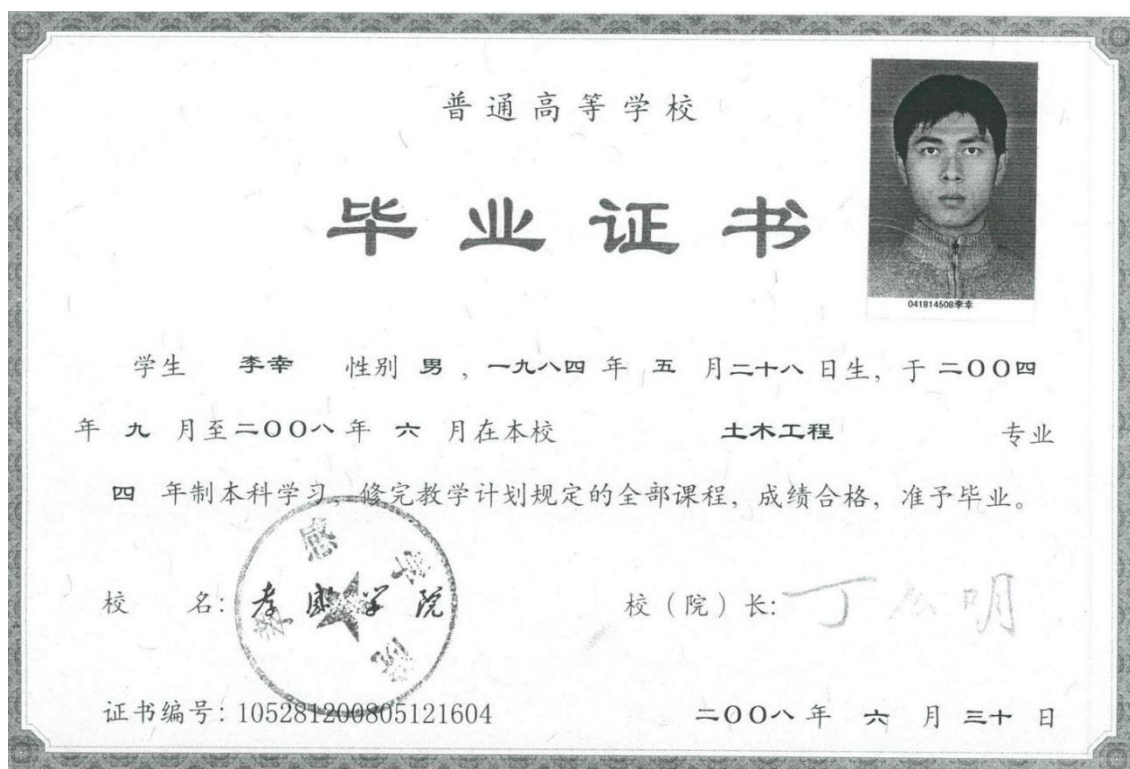 普通高等学校
毕业证书
041814508李幸
学生 李幸 性别 男 , 一九八四 年 五 月二十八 日生, 于 二〇〇四
年 九 月至二〇〇八 年 六 月在本校 土木工程 专业
四 年制本科学习, 修完教学计划规定的全部课程, 成绩合格, 准予毕业。
校 名: 孝感学院
校（院）长: 丁 明
证书编号: 105281200805121604
二〇〇八 年 六 月 三十 日